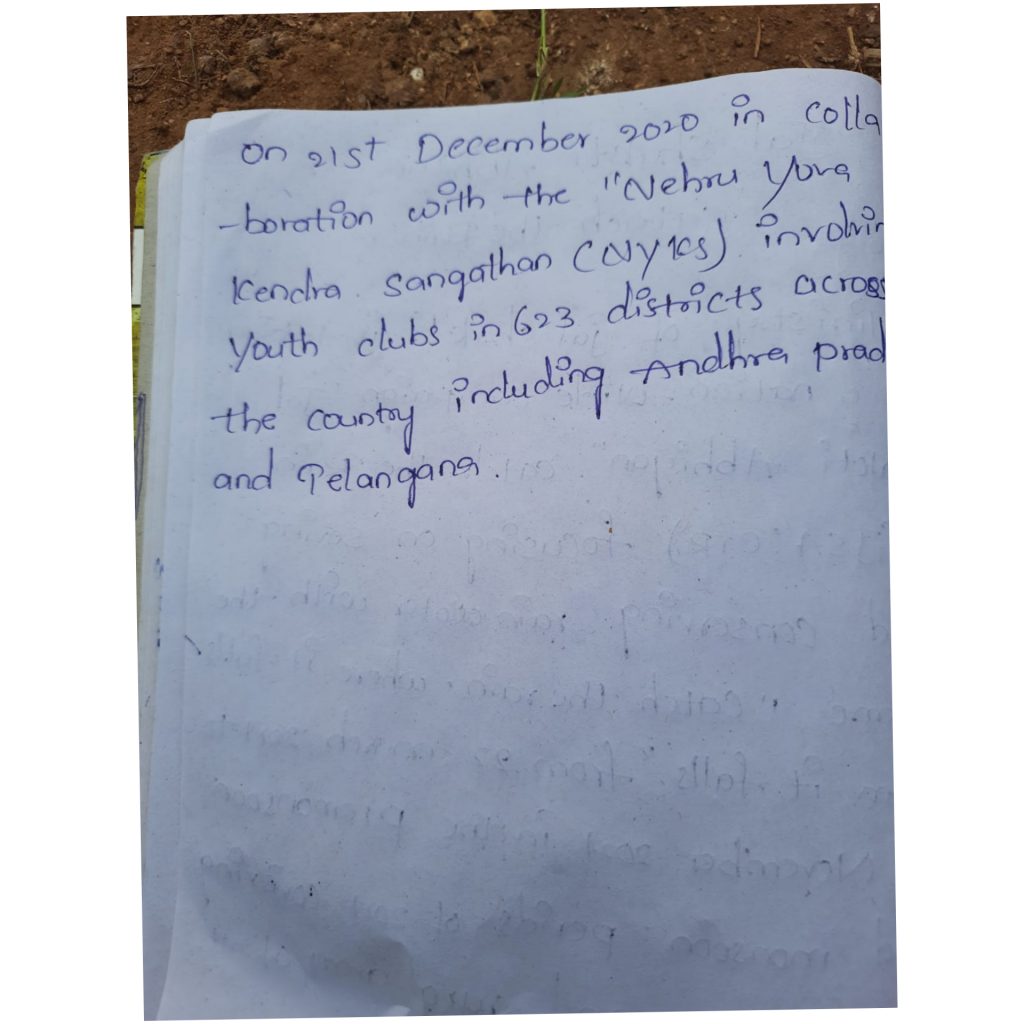 On 21st December 2020 in colla
-boration with the "Nehru Yuva
Kendra Sangathan (NYKS) involvin
Youth clubs in 623 districts across
the country including Andhra prad
and Telangana.